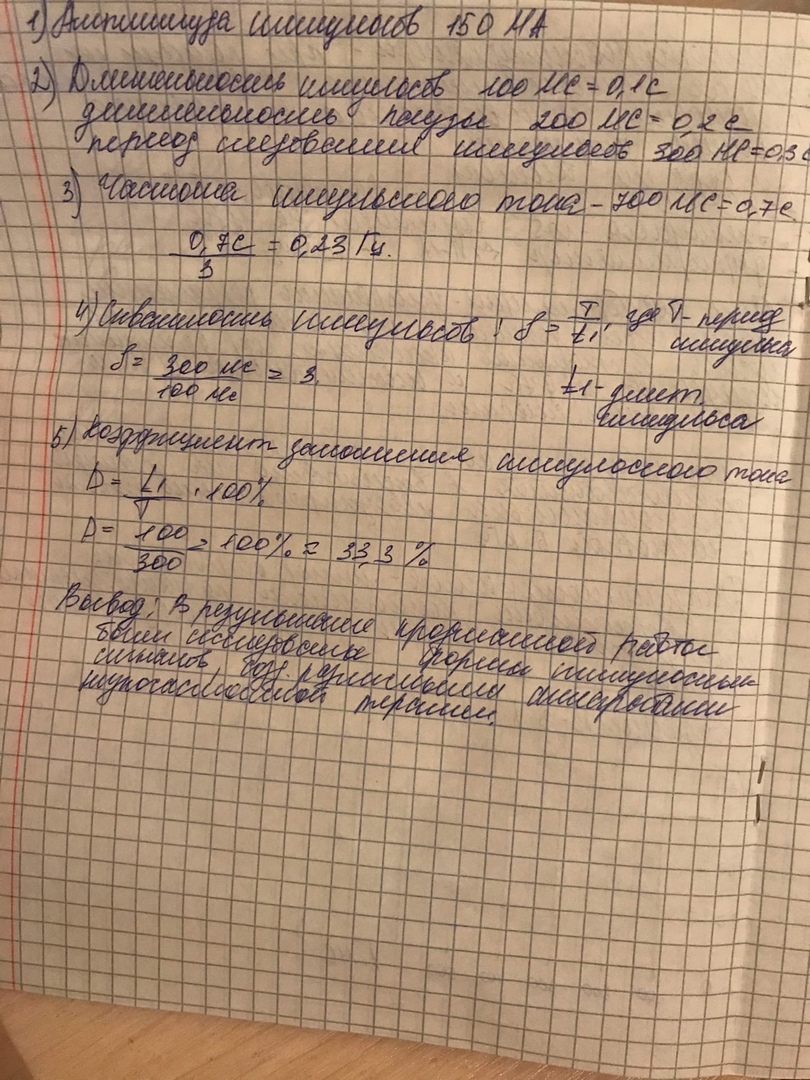 1) Амплитуда импульсов 150 МА
2) Длительность импульсов 100 мс = 0,1с
длительность паузы 200 мс = 0,2 с
период следования импульсов 300 мс = 0,3 с
3) Частота импульсного тока - 700 мс = 0,7с.
0,7с / 3 = 0,23 Гц.
4) Скважность импульсов: S = T / t1, где T - период
импульса
S = 300 мс / 100 мс = 3.
t1 - длит.
импульса
5) Коэффициент заполнения импульсного тока
D = t1 / T · 100%
D = 100 / 300 = 100% = 33,3 %
Вывод: В результате проделанной работы
были исследованы формы импульсных
сигналов, аппаратами
низкочастотной терапии.